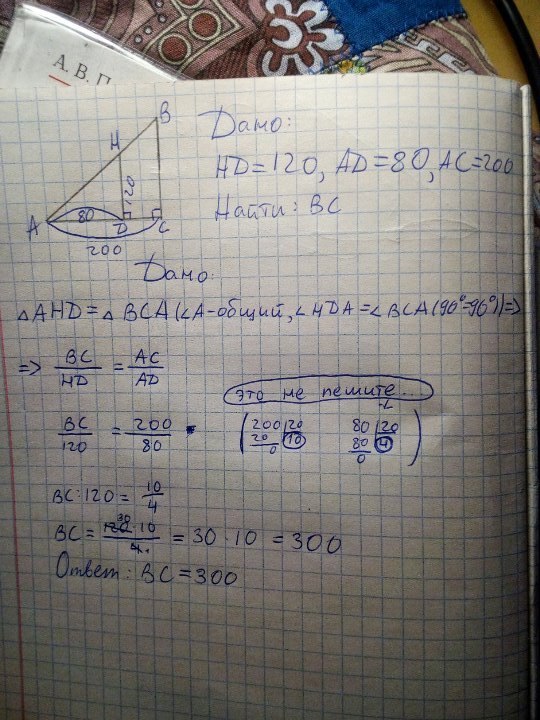 А. В. П
B
H
Дано:
120
HD=120, AD=80, AC=200
A
80
D
C
Найти: BC
200
Дано:
△AHD=△BCA(∠A-общий, ∠HDA=∠BCA(90°=90°))=>
=> BC/HD = AC/AD
это не пешите...
BC/120 = 200/80
(200 20 80 20
20 10 80 4
0 0)
BC:120= 10/4
BC= 120 30·10/4 = 30·10 =300
Ответ: BC=300